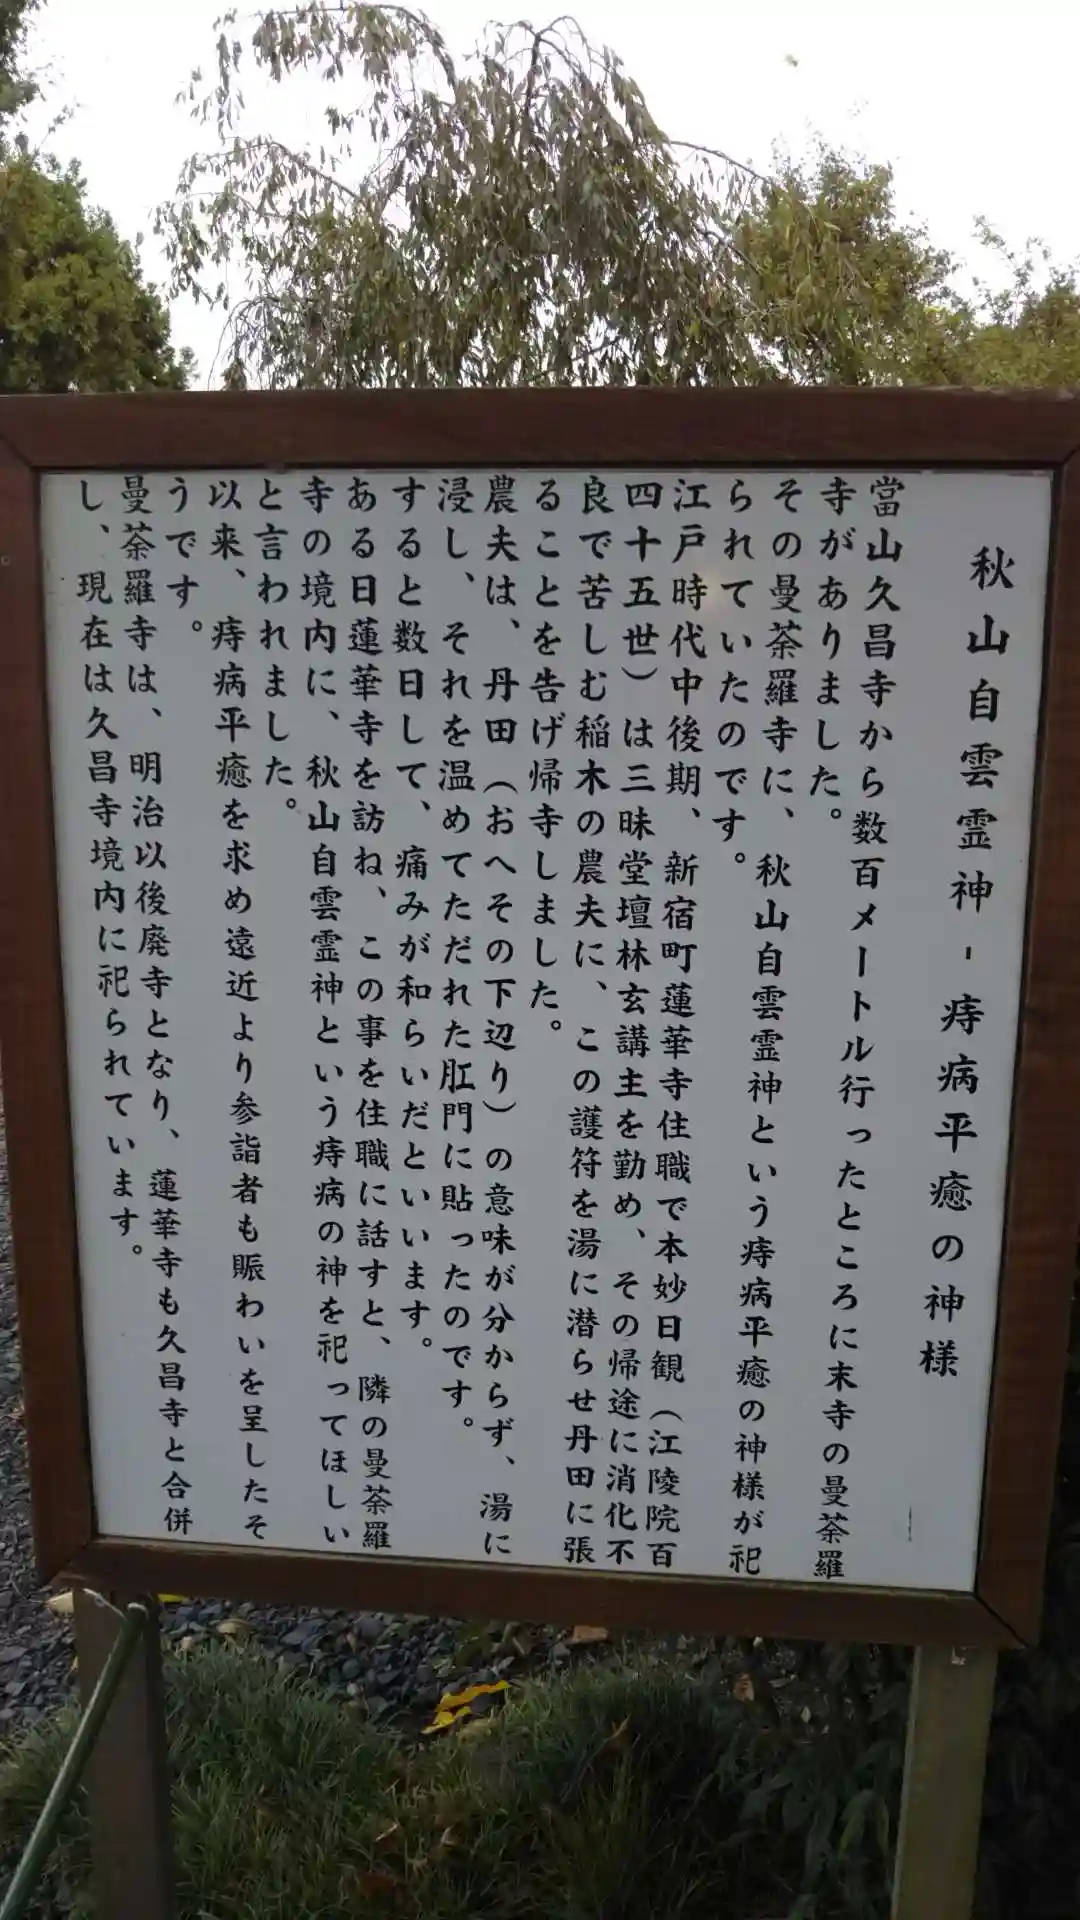 秋山自雲霊神-痔病平癒の神様
當山久昌寺から数百メートル行ったところに末寺の曼荼羅
寺がありました。
その曼荼羅寺に、秋山自雲霊神という痔病平癒の神様が祀
られていたのです。
江戸時代中後期、新宿町蓮華寺住職で本妙日観（江陵院百
四十五世）は三昧堂壇林玄講主を勤め、その帰途に消化不
良で苦しむ稲木の農夫に、この護符を湯に潜らせ丹田に張
ることを告げ帰寺しました。
農夫は、丹田（おへその下辺り）の意味が分からず、湯に
浸し、それを温めてただれた肛門に貼ったのです。
すると数日して、痛みが和らいだといいます。
ある日蓮華寺を訪ね、この事を住職に話すと、隣の曼荼羅
寺の境内に、秋山自雲霊神という痔病の神を祀ってほしい
と言われました。
以来、痔病平癒を求め遠近より参詣者も賑わいを呈したそ
うです。
曼荼羅寺は、明治以後廃寺となり、蓮華寺も久昌寺と合併
し、現在は久昌寺境内に祀られています。